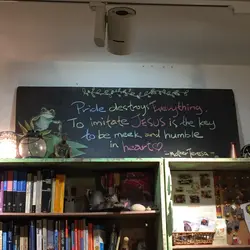 Pride destroys Everything.
To imitate JESUS is the key
to be meek and humble
in heart
- Mother Teresa -